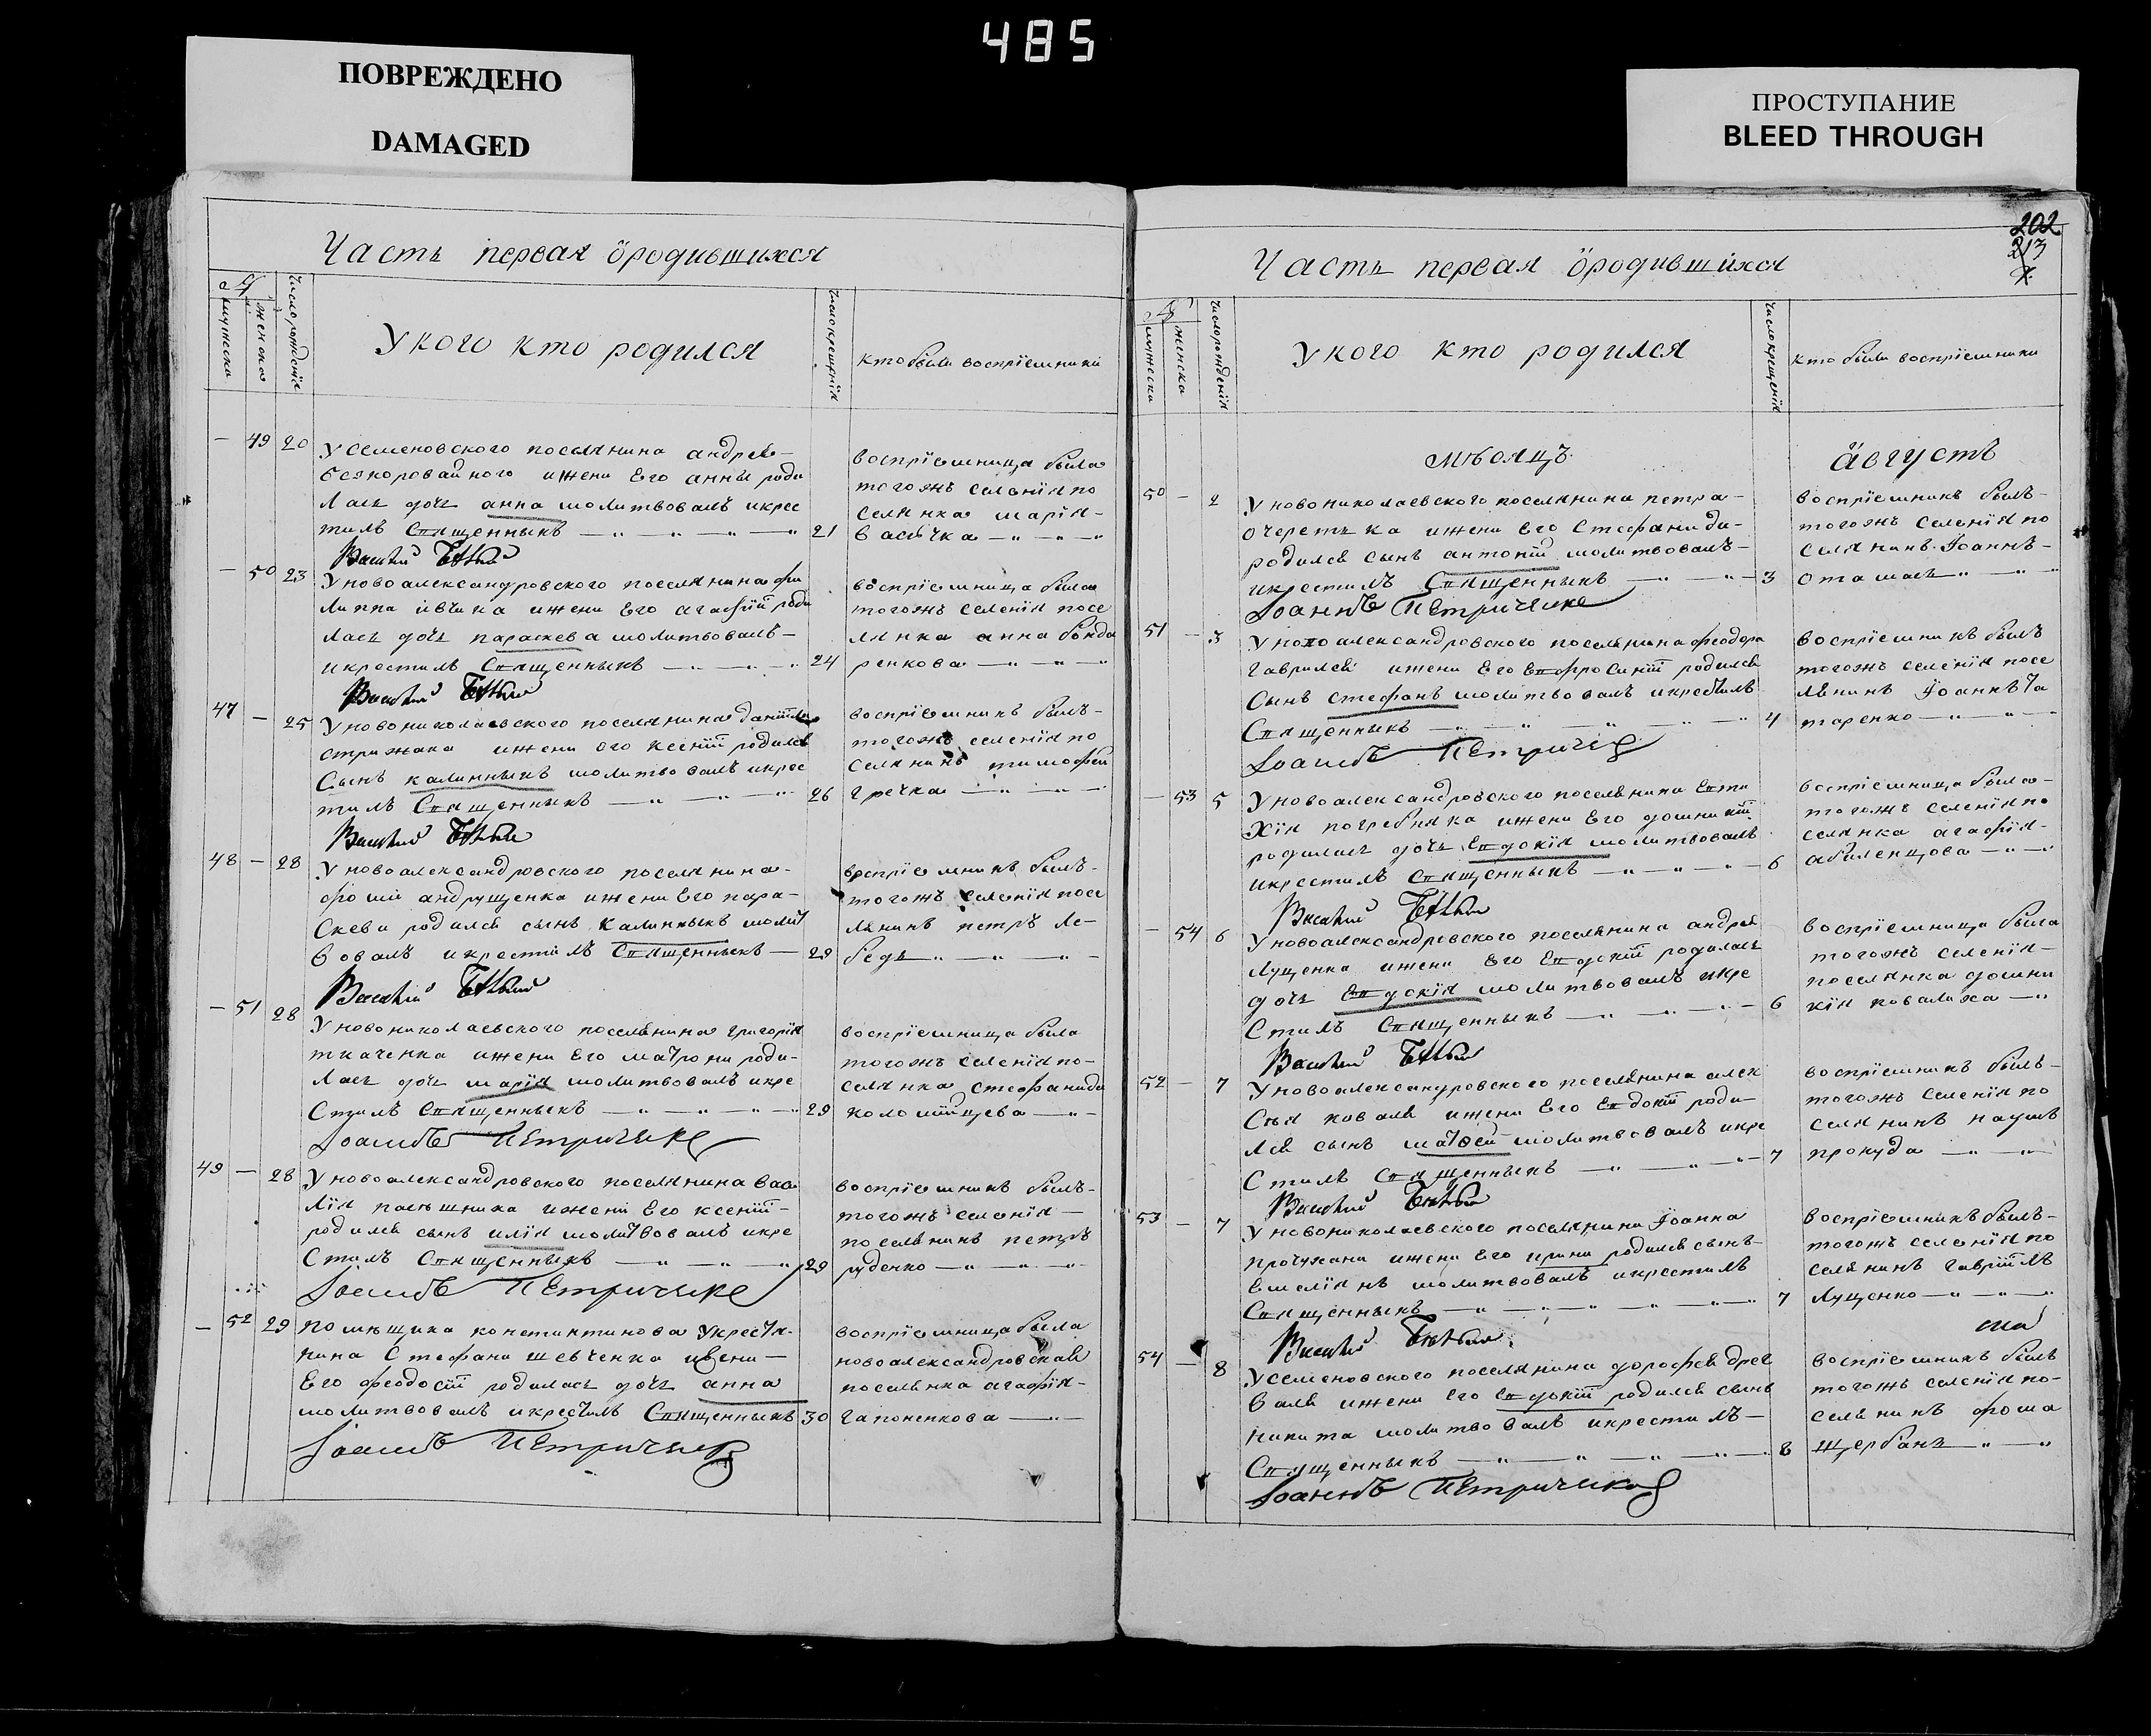 485
ПОВРЕЖДЕНО
DAMAGED
ПРОСТУПАНИЕ
BLEED THROUGH
Часть первая ӧродившихся
мужеска
женска
число рожденія
У кого кто родился
число крещенія
кто были воспріемники
— 49 20 У семеновского поселянина андрея—
безкоровайного ижени Его анны роди
лась дочь анна молитвовалъ икрес
тилъ Священникъ — „ — „ — „ — „ 21
Василий
воспріемница была
тогожъ селенія по
селянка марія—
— 50 23 У новоалександровского поселянина фи
липпа ивчика ижени Его агафіи роди
лась дочь параскева молитвовалъ—
икрестилъ Священникъ — „ — „ — „ 24
Василий
воспріемница была
тогожъ селенія посе
лянка анна бонда
ренкова — „ — „ — „
47 — 25 У новониколаевского поселянина даніила
стрижака ижени его ксеніи родился
Сынъ калинникъ молитвовалъ икрес
тилъ Священникъ — „ — „ — „ 26
Василий
воспріемникъ былъ—
тогожъ селенія по
селянинъ тимофей
гречка — „ — „ — „
48 — 28 У новоалександровского поселянина—
фоми андрущенка ижени Его пара—
скеви родился сынъ Калинникъ молит
вовалъ икрестилъ Священникъ — 29
Василий
воспріемникъ былъ—
тогожъ селенія посе
лянинъ петръ ле—
бедь „ — „ — „ —
— 51 28 У новониколаевского поселянина григорія
ткаченка ижени Его матрони роди—
лась дочь марія молитвовалъ икре
стилъ Священникъ — „ — „ — „ 29
Іоаннъ Петриченко
воспріемница была
тогожъ селенія по—
селянка Стефанида
коломійцева — „ —
49 — 28 У новоалександровского поселянина васи
лія ижени Его ксеніи—
родился сынъ илія молитвовалъ икре
Стилъ Священникъ — „ — „ — „ 29
Іоаннъ Петриченко
воспріемникъ былъ—
тогожъ селенія—
поселянинъ петръ
руденко — „ — „ — „
— 52 29 помѣщика константинова Укрестя—
нина Стефана шевченка ижени—
Его феодосіи родилась дочь анна
молитвовалъ икрестилъ Священникъ 30
Іоаннъ Петриченко
воспріемница была
новоалександровская
поселянка агафія—
гапоненкова — „ —
202
213
Часть первая ӧродившихся
мужеска
женска
число рожденія
У кого кто родился
число крещенія
кто были воспріемники
мѣсяцъ
августъ
50 — 2 У новониколаевского поселянина петра—
очеретька ижени Его Стефаниди—
родился сынъ антоній молитвовалъ—
икрестилъ Священникъ — „ — „ — 3
Іоаннъ Петриченко
воспріемникъ былъ—
тогожъ селенія по
селянинъ Іоаннъ—
Отамась „ — „ — „
51 — 3 У новоалександровского поселянина феодора
гаврилея ижени Его Евфросиніи родился
Сынъ стефанъ молитвовалъ икрестилъ
Священникъ — „ — „ — „ — „ 4
Іоаннъ Петриченко
воспріемникъ былъ
тогожъ селенія посе
лянинъ Іоаннъ та
таренко — „ — „ —
— 53 5 У новоалександровского поселянина Евти
хія погребняка ижени Его домникіи
родилась дочь Евдокія молитвовалъ
икрестилъ Священникъ — „ — „ — „ — 6
Василий
воспріемница была—
тогожъ селенія по
селянка агафія—
абаленцова — „ — „
— 54 6 У новоалександровского поселянина андрея
Лущенка ижени Его Евдокіи родилась
дочь Евдокія молитвовалъ икре
Стилъ Священникъ — „ — „ — „ — 6
Василий
воспріемница была
тогожъ селенія—
поселянка домни
кія ковалиха — „
52 — 7 У новоалександровского поселянина алек
сѣя коваля ижени Его Евдокіи роди—
лся сынъ матѳей молитвовалъ икре
Стилъ Священникъ — „ — „ — „ — 7
Василий
воспріемникъ былъ—
тогожъ селенія по
селянинъ наумъ
прокуда — „ — „
53 — 7 У новониколаевского поселянина Іоанна
ижени Его ирини родился сынъ—
Емеліянъ молитвовалъ икрестилъ
Священникъ — „ — „ — „ — „ — 7
Василий
воспріемникъ былъ—
тогожъ селенія по
селянинъ гавріилъ
Лущенко — „ — „ — „
54 — 8 У семеновского поселянина дорофея
валя ижени Его Евдокіи родился сынъ
никита молитвовалъ икрестилъ—
Священникъ — „ — „ — „ — „ — 8
Іоаннъ Петриченко
воспріемникъ былъ
тогожъ селенія по—
селянинъ фома
щербань — „ — „